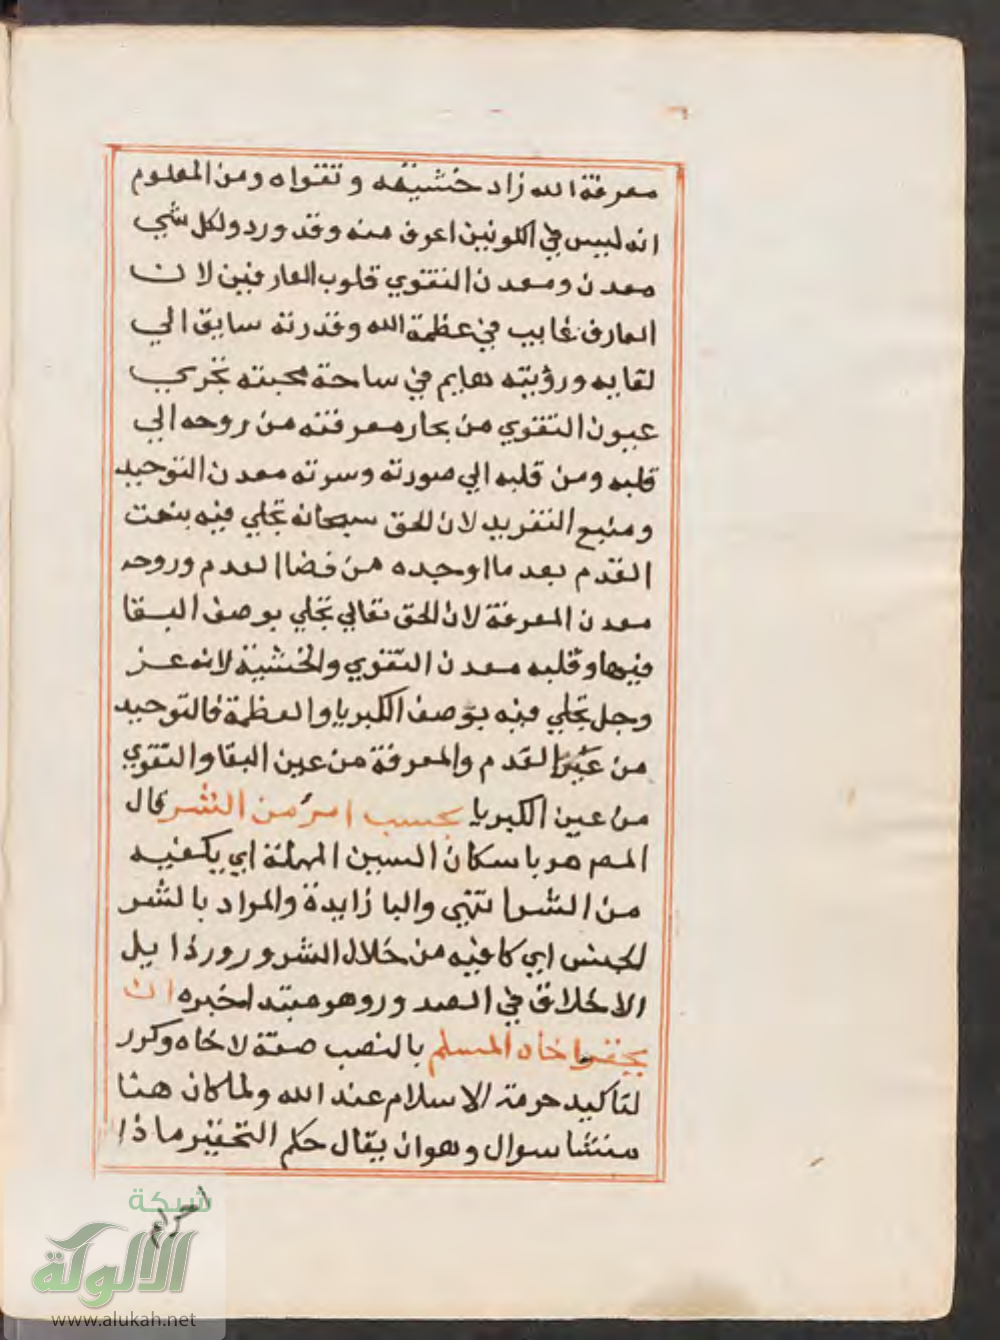 معرفة الله زاد خشيته وتقواه ومن المعلوم
انه ليس في الكونين اعرف منه وقد ورد ولكل شي
معدن ومعدن التقوي قلوب العارفين لان
العارف غايب في عظمة الله وقدرته سابق الي
لقايه ورؤيته هايم في ساحة محبته تجري
عيون التقوي من بحار معرفته من روحه الي
قلبه ومن قلبه الي صورته وسرته معدن التوحيد
ومنبع التفريد لان الحق سبحانه تجلي فيه بنعت
القدم بعد ما اوجده من فضا العدم وروحه
معدن المعرفة لان الحق تعالي تجلي بوصف البقا
فيها وقلبه معدن التقوي والخشية لانه عز
وجل تجلي فيه بوصف الكبريا والعظمة فالتوحيد
من عين القدم والمعرفة من عين البقا والتقوي
من عين الكبريا بحسب امرء من الشر قال
المص هو باسكان السين المهملة اي يكفيه
من الشر انتهي والبا زايدة والمراد بالشر
الجنس اي كافيه من خلال الشرور ورذايل
الاخلاق في الصدور وهو مبتدا خبره ان
يحقر اخاه المسلم بالنصب صفة لاخاه وكرر
لتاكيد حرمة الاسلام عند الله ولما كان هنا
منشا سوال وهو ان يقال حكم التحقير ماذا
احرام
شبكة
الألوكة
www.alukah.net